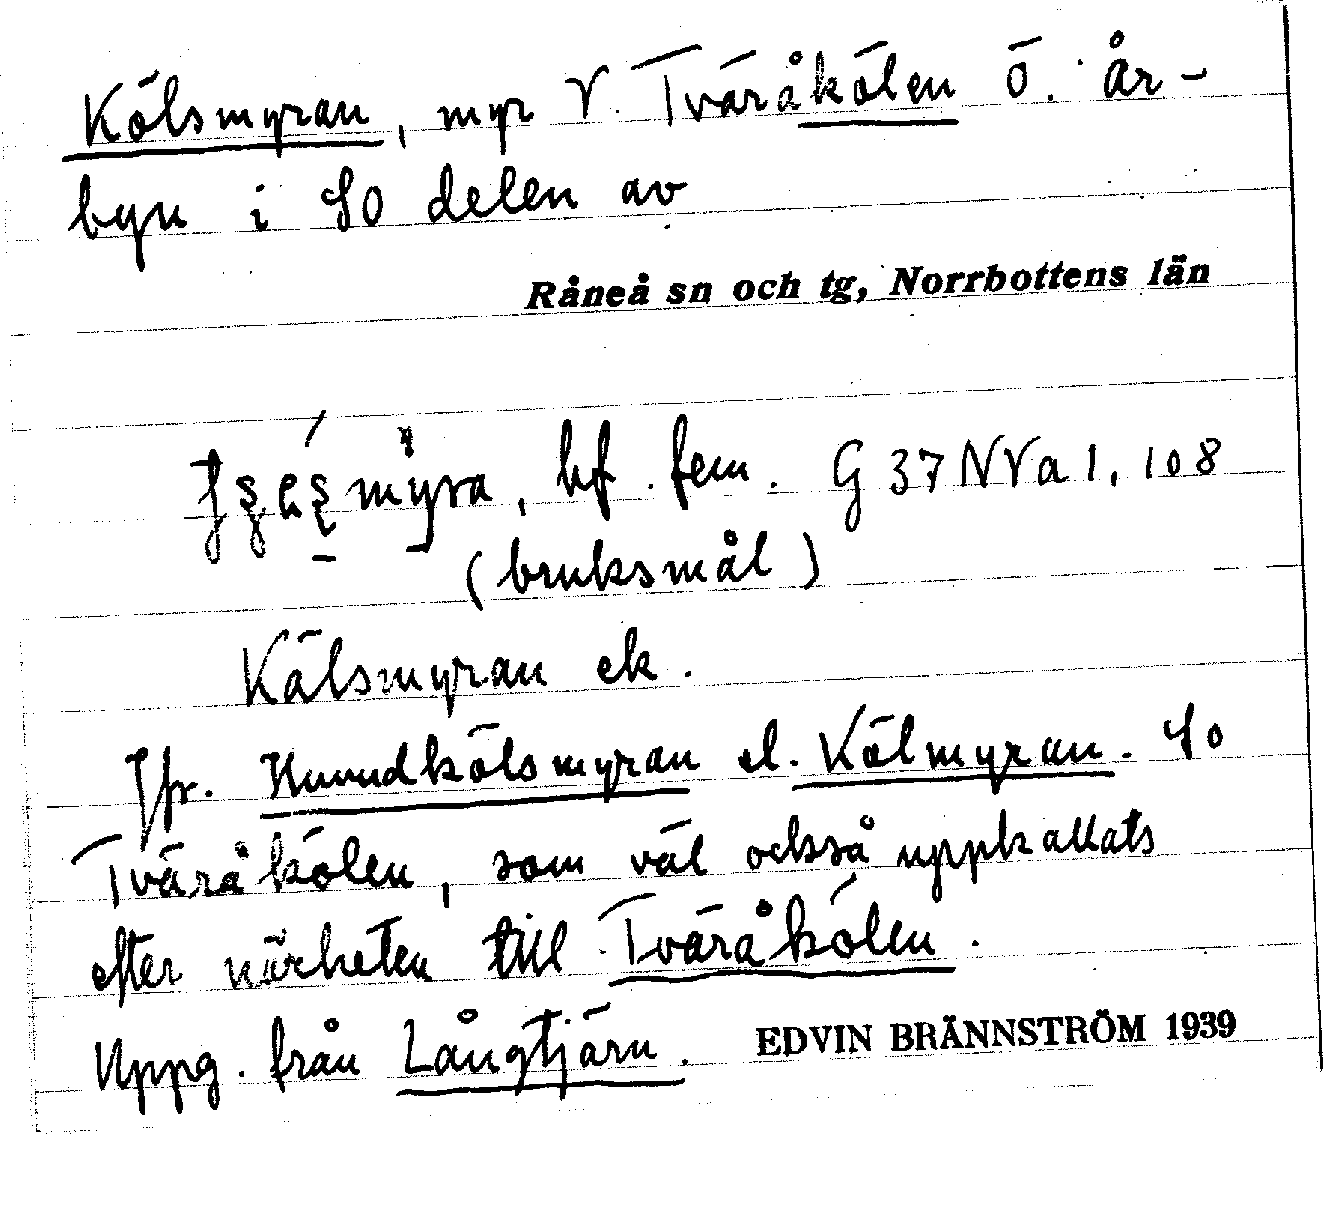 Kölsmyran, myr V. Tväråkölen Ö. År-
byn i SO delen av
Råneå sn och tg, Norrbottens län
bf. fem. G 37 NVa 1, 108
(bruksmål)
Kälsmyran ek.
Jfr. Huvudkölsmyran el. Kölmyran. SO
Tväråkölen, som väl också uppkallats
efter närheten till Tväråkölen.
Uppg. från Långtjärn. EDVIN BRÄNNSTRÖM 1939